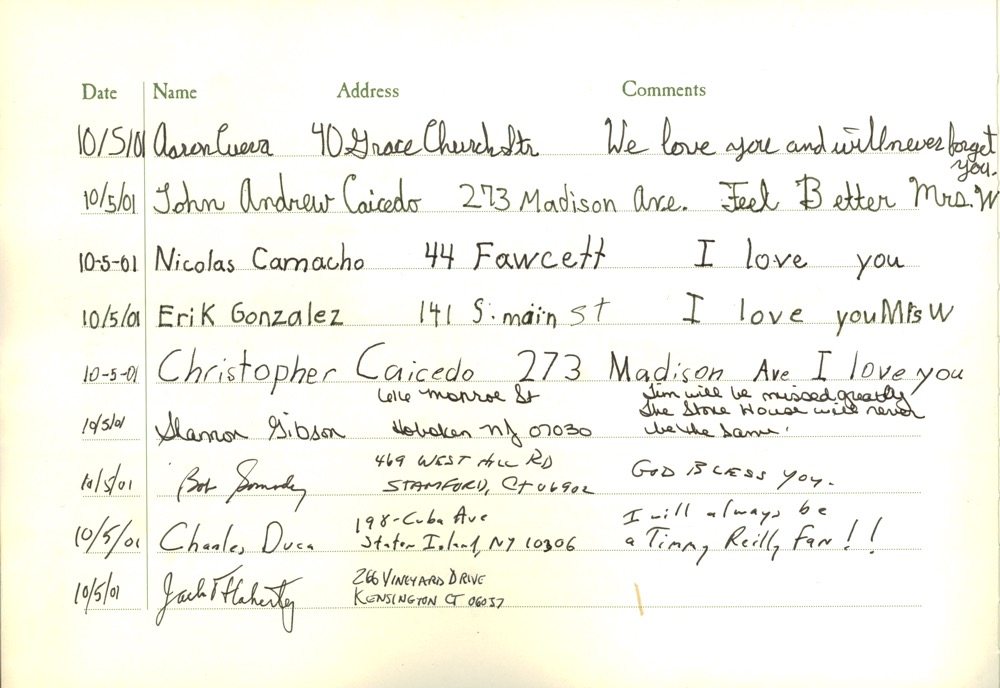 Date Name Address Comments
10/5/01 Aaron Cueva 40 Grace Church Str We love you and will never forget
you.
10/5/01 John Andrew Caicedo 273 Madison Ave. Feel Better Mrs. W
10-5-01 Nicolas Camacho 44 Fawcett I love you
10/5/01 Erik Gonzalez 141 S. main st I love you Mrs W
10-5-01 Christopher Caicedo 273 Madison Ave I love you
Monroe St Tim will be missed greatly
The Stone House will never
10/5/01 Gibson Hoboken NJ 07030 be the same!
469 WEST HILL RD
10/5/01 Bob STAMFORD, CT 06902 GOD BLESS YOU.
198-Cuba Ave I will always be
10/5/01 Charles Duca Staten Island, NY 10306 a Timmy Reilly Fan!!
266 VINEYARD DRIVE
10/5/01 Jack Flaherty KENSINGTON CT 06037